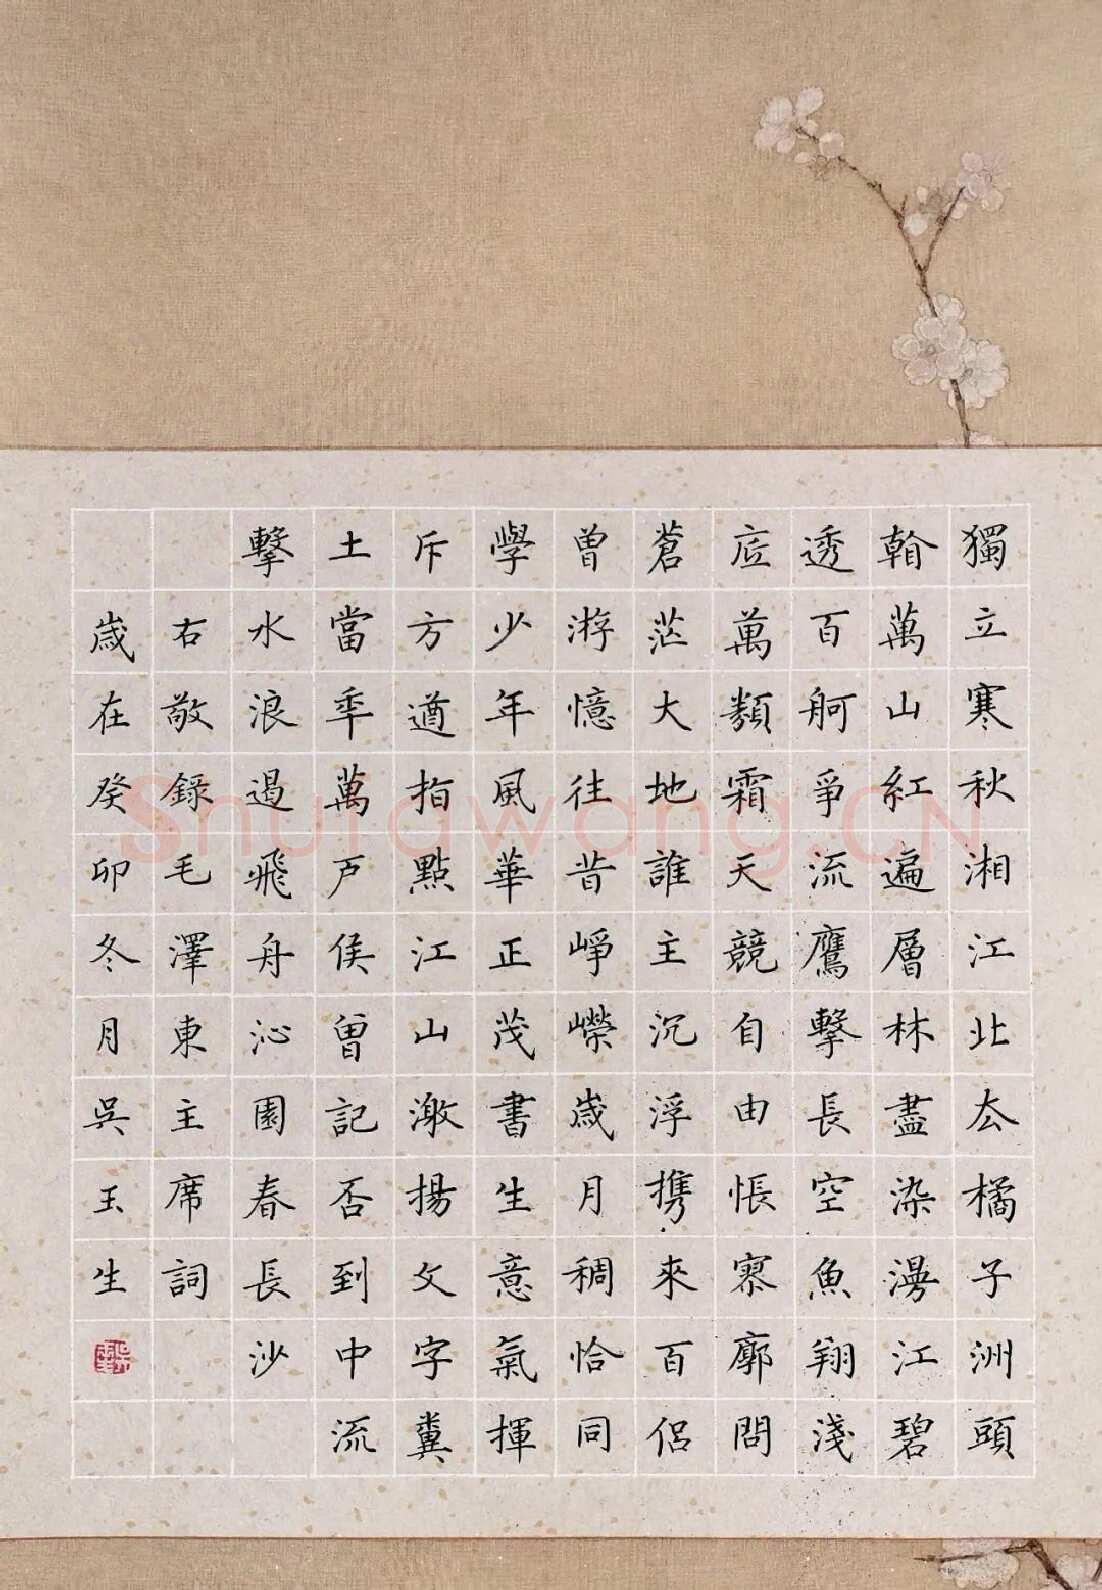 獨立寒秋湘江北厺橘子洲頭
看萬山紅遍層林盡染漫江碧
透百舸爭流鷹擊長空魚翔淺
底萬類霜天競自由悵寥廓問
蒼茫大地誰主沉浮携來百侶
曾游憶往昔崢嶸歲月稠恰同
學少年風華正茂書生意氣揮
斥方遒指點江山激揚文字糞
土當年萬戶侯曾記否到中流
擊水浪遏飛舟沁園春長沙
右敬錄毛澤東主席詞
歲在癸卯冬月吳玉生
Shufawang.CN